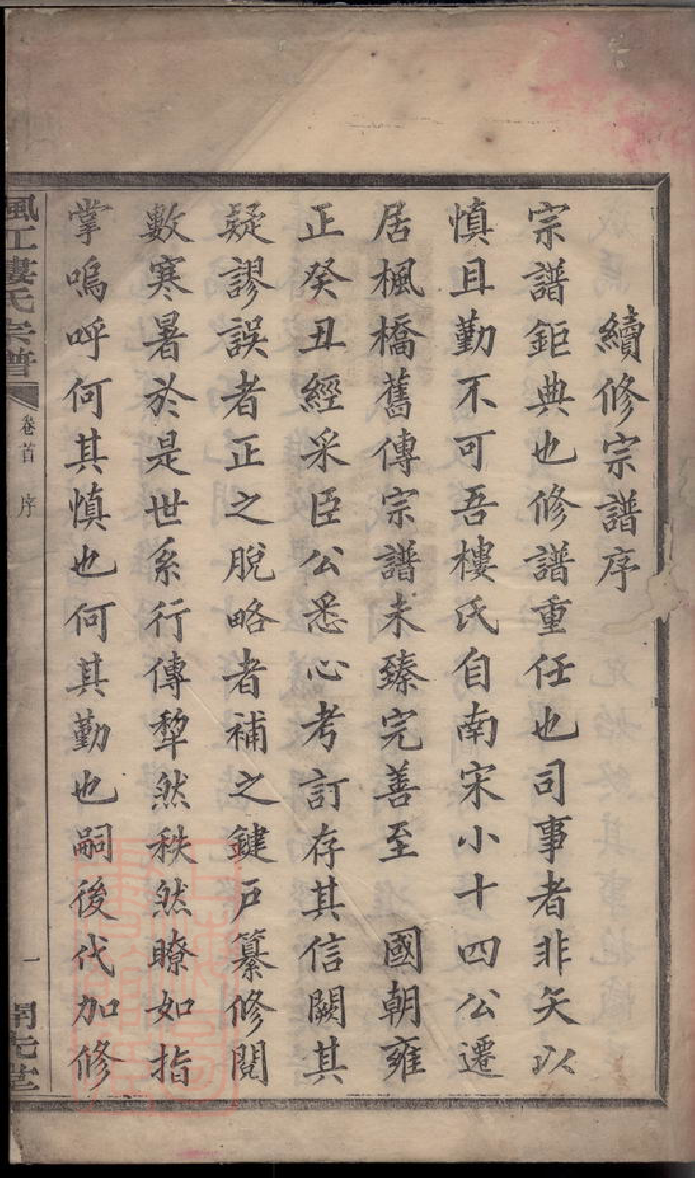 續修宗譜序
宗譜鉅典也修譜重任也司事者非矢以
慎且勤不可吾樓氏自南宋小十四公遷
居楓橋舊傳宗譜未臻完善至 國朝雍
正癸丑經采臣公悉心考訂存其信闕其
疑謬誤者正之脫略者補之鍵戶纂修閱
數寒暑於是世系行傳犂然秩然瞭如指
掌嗚呼何其慎也何其勤也嗣後代加修
氏宗譜 卷首 序 一 堂